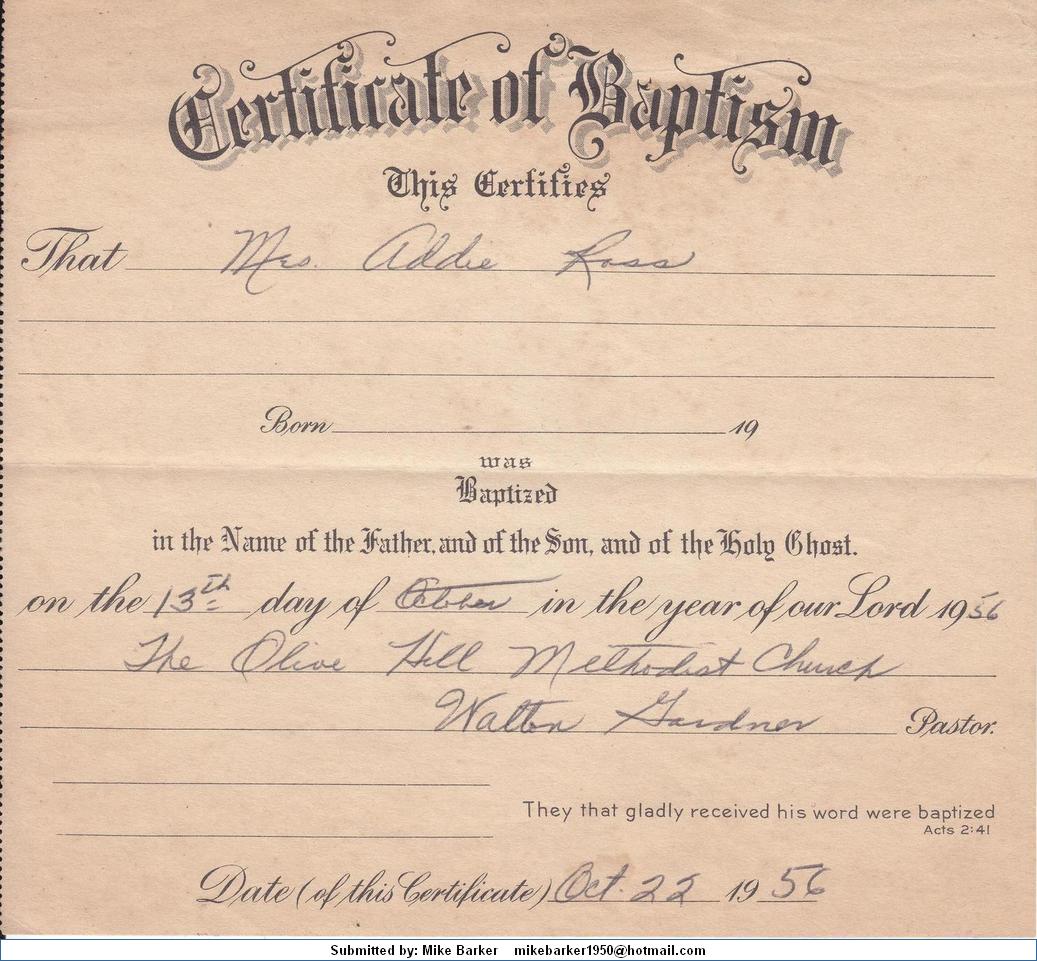 Certificate of Baptism
This Certifies
That Mrs. Addie Ross
Born 19
was
Baptized
in the Name of the Father, and of the Son, and of the Holy Ghost.
on the 13th day of October in the year of our Lord 1956
The Olive Hill Methodist Church
Walton Gardner Pastor.
They that gladly received his word were baptized
Acts 2:41
Date (of this Certificate) Oct. 22 1956
Submitted by: Mike Barker mikebarker1950@hotmail.com